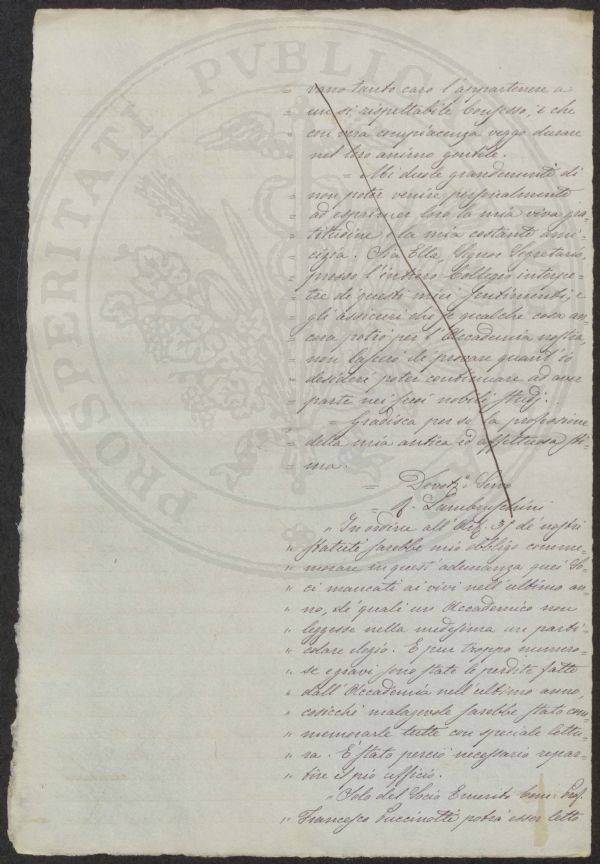 PROSPERITATI PUBLICAE
= vano tanto caro l'appartenere a
= un sì rispettabile Consesso, e che
= con viva compiacenza veggo durare
= nel loro animo gentile.
= = Mi duole grandemente di
= non poter venire personalmente
= ad esprimer loro la mia viva gra-
= titudine e la mia costante ami-
= cizia. Sia Ella, Signor Segretario,
= presso l'intiero Collegio interpe-
= tre di questi miei sentimenti, e
= gli assicuri che se qualche cosa an-
= cora potrò per l'Accademia nostra,
= non lascerò di provare quant'io
= desideri poter continuare ad aver
= parte nei suoi nobili studj.
= = Gradisca per se la professione
= della mia antica ed affettuosa sti-
= ma.
= Devot.º Servo
= R. Lambruschini
" In ordine all'Art. 35 de' nostri
" statuti sarebbe mio obbligo comme-
" morare in quest'adunanza quei So-
" ci mancati ai vivi nell'ultimo an-
" no, de' quali un Accademico non
" leggesse nella medesima un parti-
" colare elogio. E pur troppo numero-
" se e gravi sono state le perdite fatte
" dall'Accademia nell'ultimo anno,
" cosicchè malagevole sarebbe stato com-
" memorarle tutte con speciale lettu-
" ra. È stato perciò necessario repar-
" tire il pio ufficio.
" Solo del Socio Emerito Com: Prof.
" Francesco Puccinotti potrà esser letto